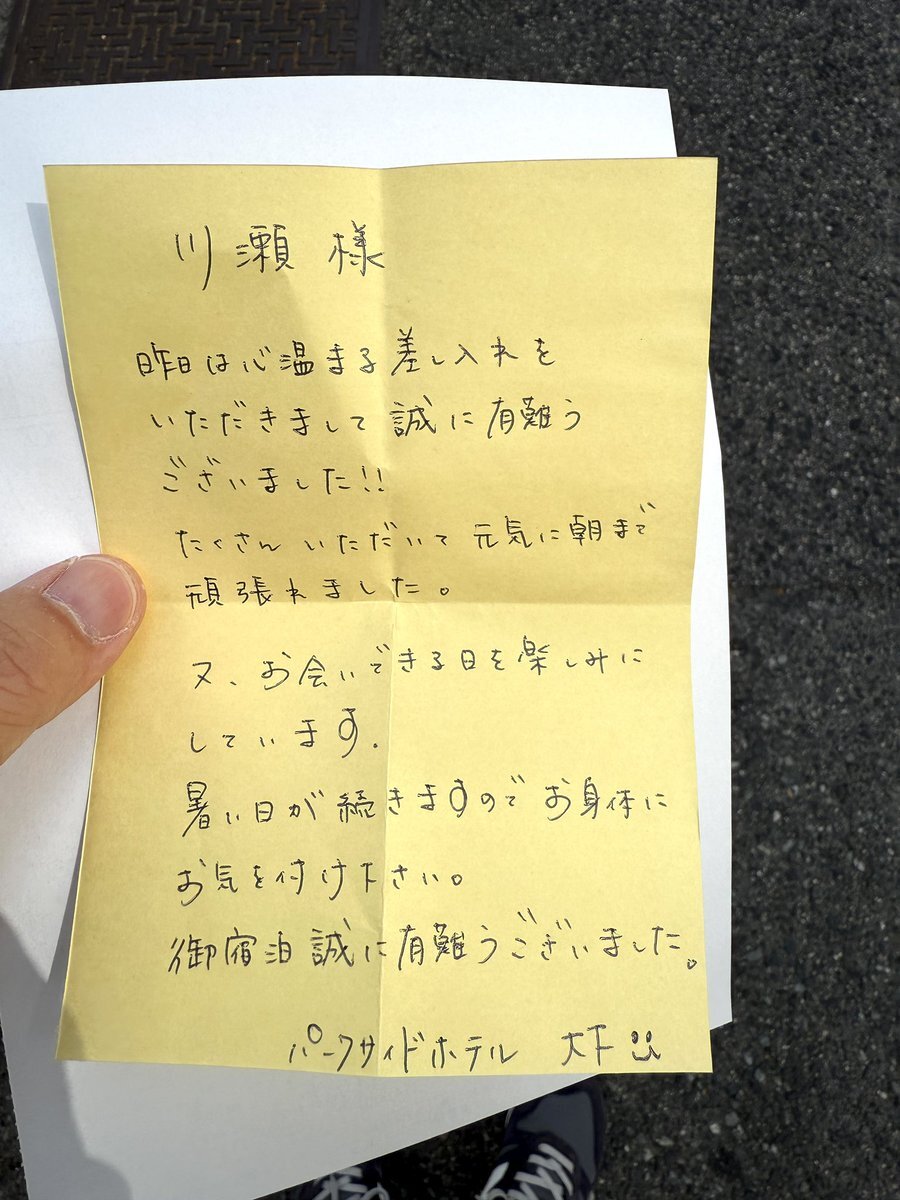 川瀬 様
昨日は心温まる差し入れを
いただきまして 誠に有難う
ございました!!
たくさん いただいて 元気に朝まで
頑張れました。
又、お会いできる日を楽しみに
しています.
暑い日が続きますので お身体に
お気を付け下さい。
御宿泊 誠に有難うございました。
パークサイドホテル 大下